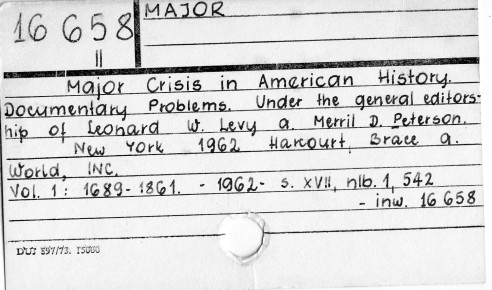 16 658
II
MAJOR
Major Crisis in American History.
Documentary Problems. Under the general editors-
hip of Leonard W. Levy a. Merril D. Peterson.
New York 1962 Harcourt, Brace a.
World, INC.
Vol. 1: 1689-1861. - 1962 - s. XVII, nlb. 1, 542
- inw. 16 658